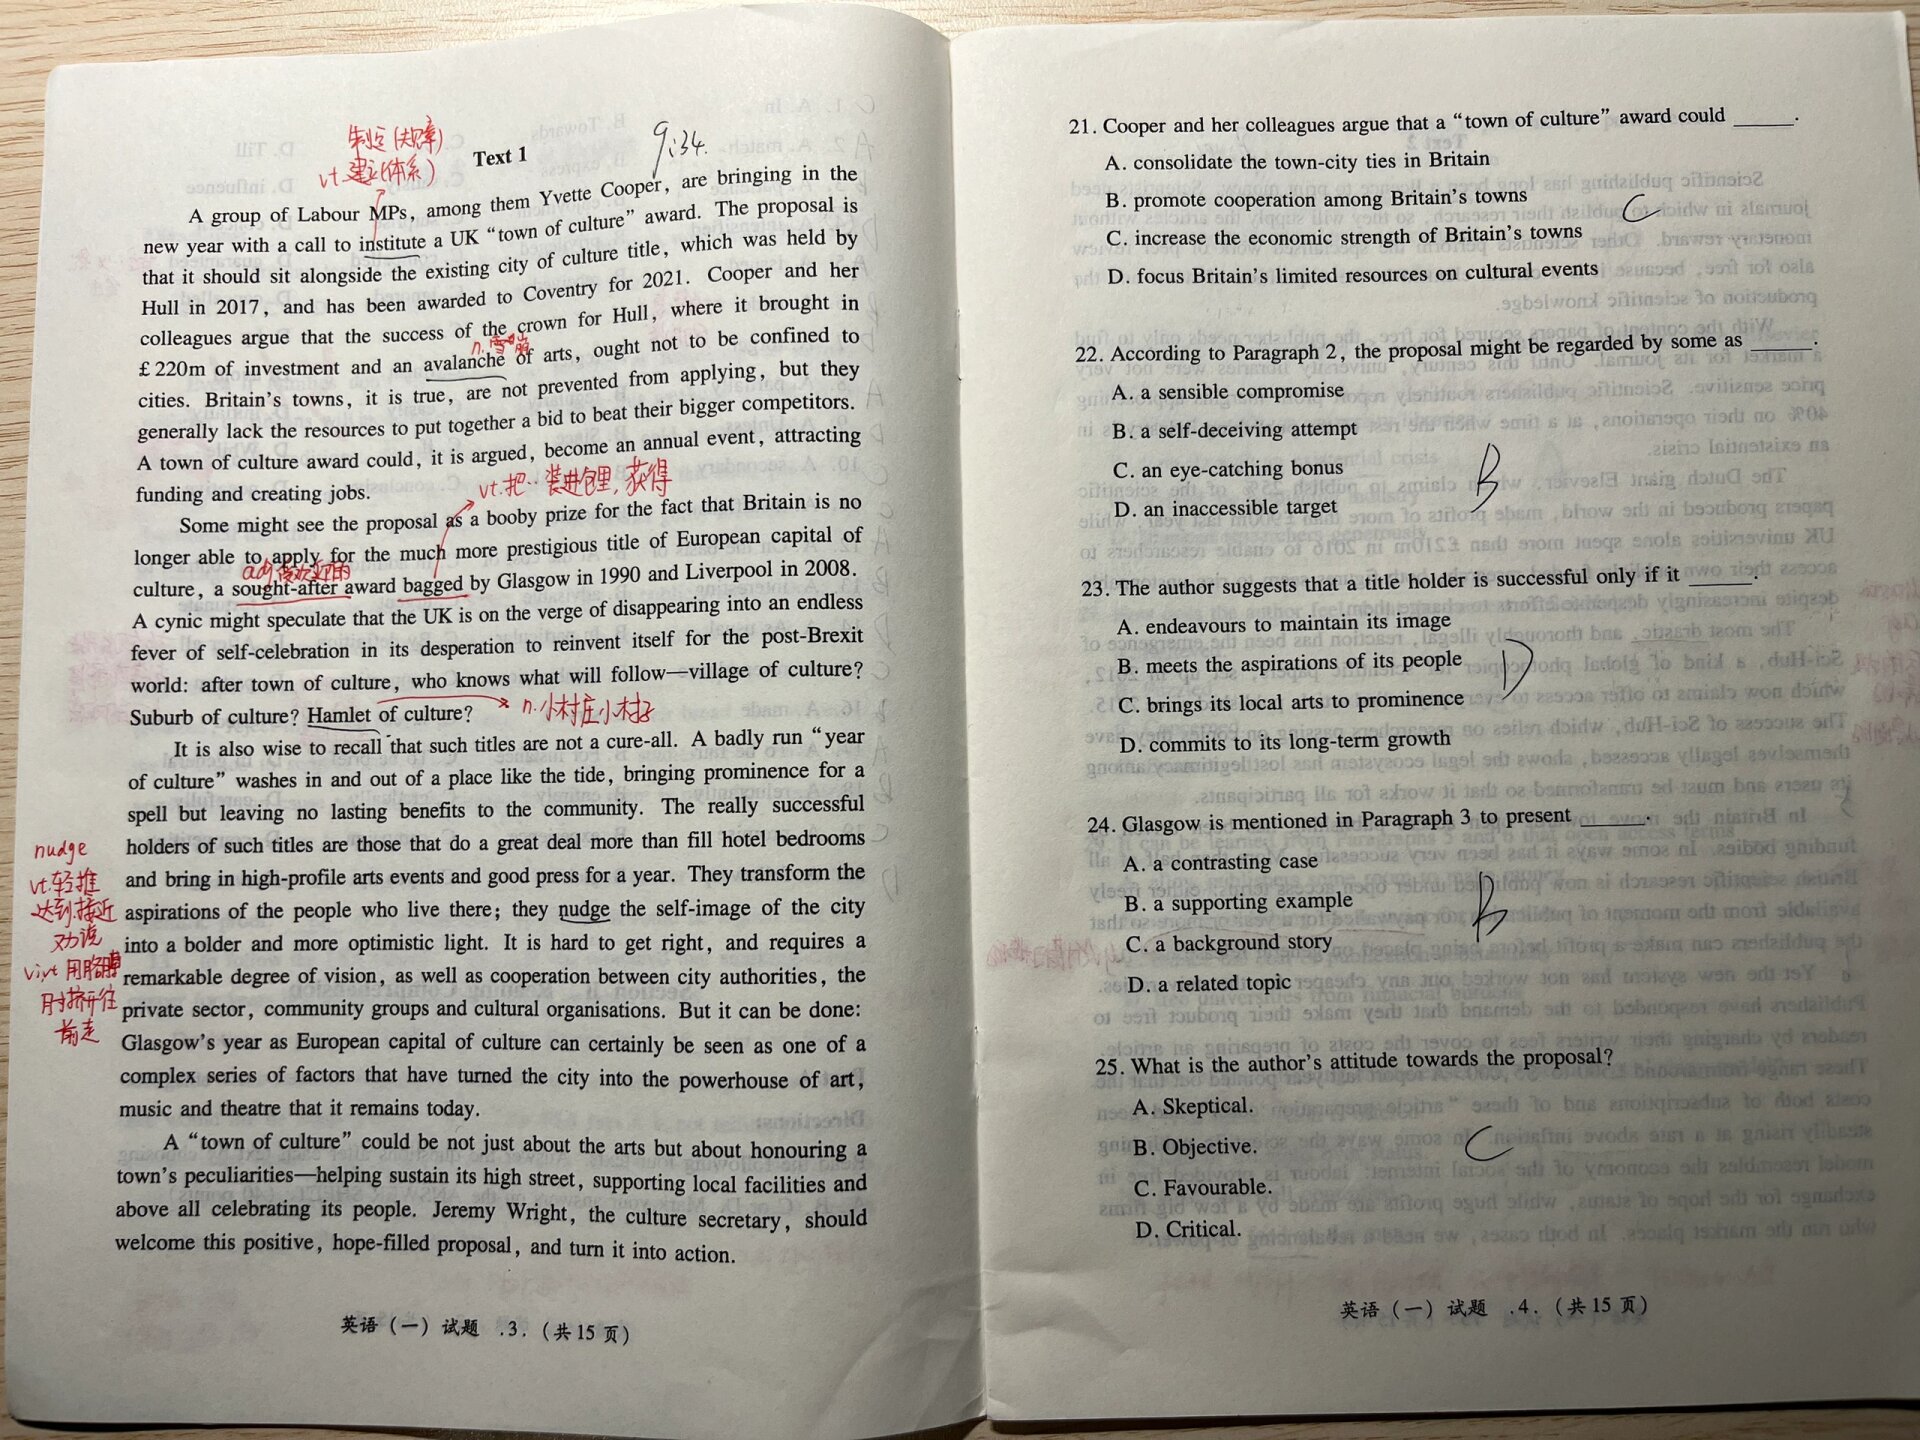 制定(规章)
vt.建立(体系)
Text 1
9:34.
A group of Labour MPs, among them Yvette Cooper, are bringing in the
new year with a call to institute a UK “town of culture” award. The proposal is
that it should sit alongside the existing city of culture title, which was held by
Hull in 2017, and has been awarded to Coventry for 2021. Cooper and her
colleagues argue that the success of the crown for Hull, where it brought in
n.雪崩
£220m of investment and an avalanche of arts, ought not to be confined to
cities. Britain's towns, it is true, are not prevented from applying, but they
generally lack the resources to put together a bid to beat their bigger competitors.
A town of culture award could, it is argued, become an annual event, attracting
funding and creating jobs.
vt.把..装进包里,获得
Some might see the proposal as a booby prize for the fact that Britain is no
longer able to apply for the much more prestigious title of European capital of
adj.受欢迎的
culture, a sought-after award bagged by Glasgow in 1990 and Liverpool in 2008.
A cynic might speculate that the UK is on the verge of disappearing into an endless
fever of self-celebration in its desperation to reinvent itself for the post-Brexit
world: after town of culture, who knows what will follow—village of culture?
Suburb of culture? Hamlet of culture?
n.小村庄小村子
It is also wise to recall that such titles are not a cure-all. A badly run “year
of culture” washes in and out of a place like the tide, bringing prominence for a
spell but leaving no lasting benefits to the community. The really successful
holders of such titles are those that do a great deal more than fill hotel bedrooms
and bring in high-profile arts events and good press for a year. They transform the
aspirations of the people who live there; they nudge the self-image of the city
into a bolder and more optimistic light. It is hard to get right, and requires a
remarkable degree of vision, as well as cooperation between city authorities, the
private sector, community groups and cultural organisations. But it can be done:
Glasgow's year as European capital of culture can certainly be seen as one of a
complex series of factors that have turned the city into the powerhouse of art,
music and theatre that it remains today.
nudge
vt.轻推
达到.接近
劝说
vivt 用胳膊
肘挤开往
前走
A “town of culture” could be not just about the arts but about honouring a
town's peculiarities—helping sustain its high street, supporting local facilities and
above all celebrating its people. Jeremy Wright, the culture secretary, should
welcome this positive, hope-filled proposal, and turn it into action.
英语(一)试题 .3.(共15页)
21. Cooper and her colleagues argue that a “town of culture” award could ______.
A. consolidate the town-city ties in Britain
B. promote cooperation among Britain's towns
C
C. increase the economic strength of Britain's towns
D. focus Britain's limited resources on cultural events
22. According to Paragraph 2, the proposal might be regarded by some as ______.
A. a sensible compromise
B. a self-deceiving attempt
C. an eye-catching bonus
B
D. an inaccessible target
23. The author suggests that a title holder is successful only if it ______.
A. endeavours to maintain its image
B. meets the aspirations of its people
D
C. brings its local arts to prominence
D. commits to its long-term growth
24. Glasgow is mentioned in Paragraph 3 to present ______.
A. a contrasting case
B. a supporting example
B
C. a background story
D. a related topic
25. What is the author's attitude towards the proposal?
A. Skeptical.
B. Objective.
C
C. Favourable.
D. Critical.
英语(一)试题 .4.(共15页)